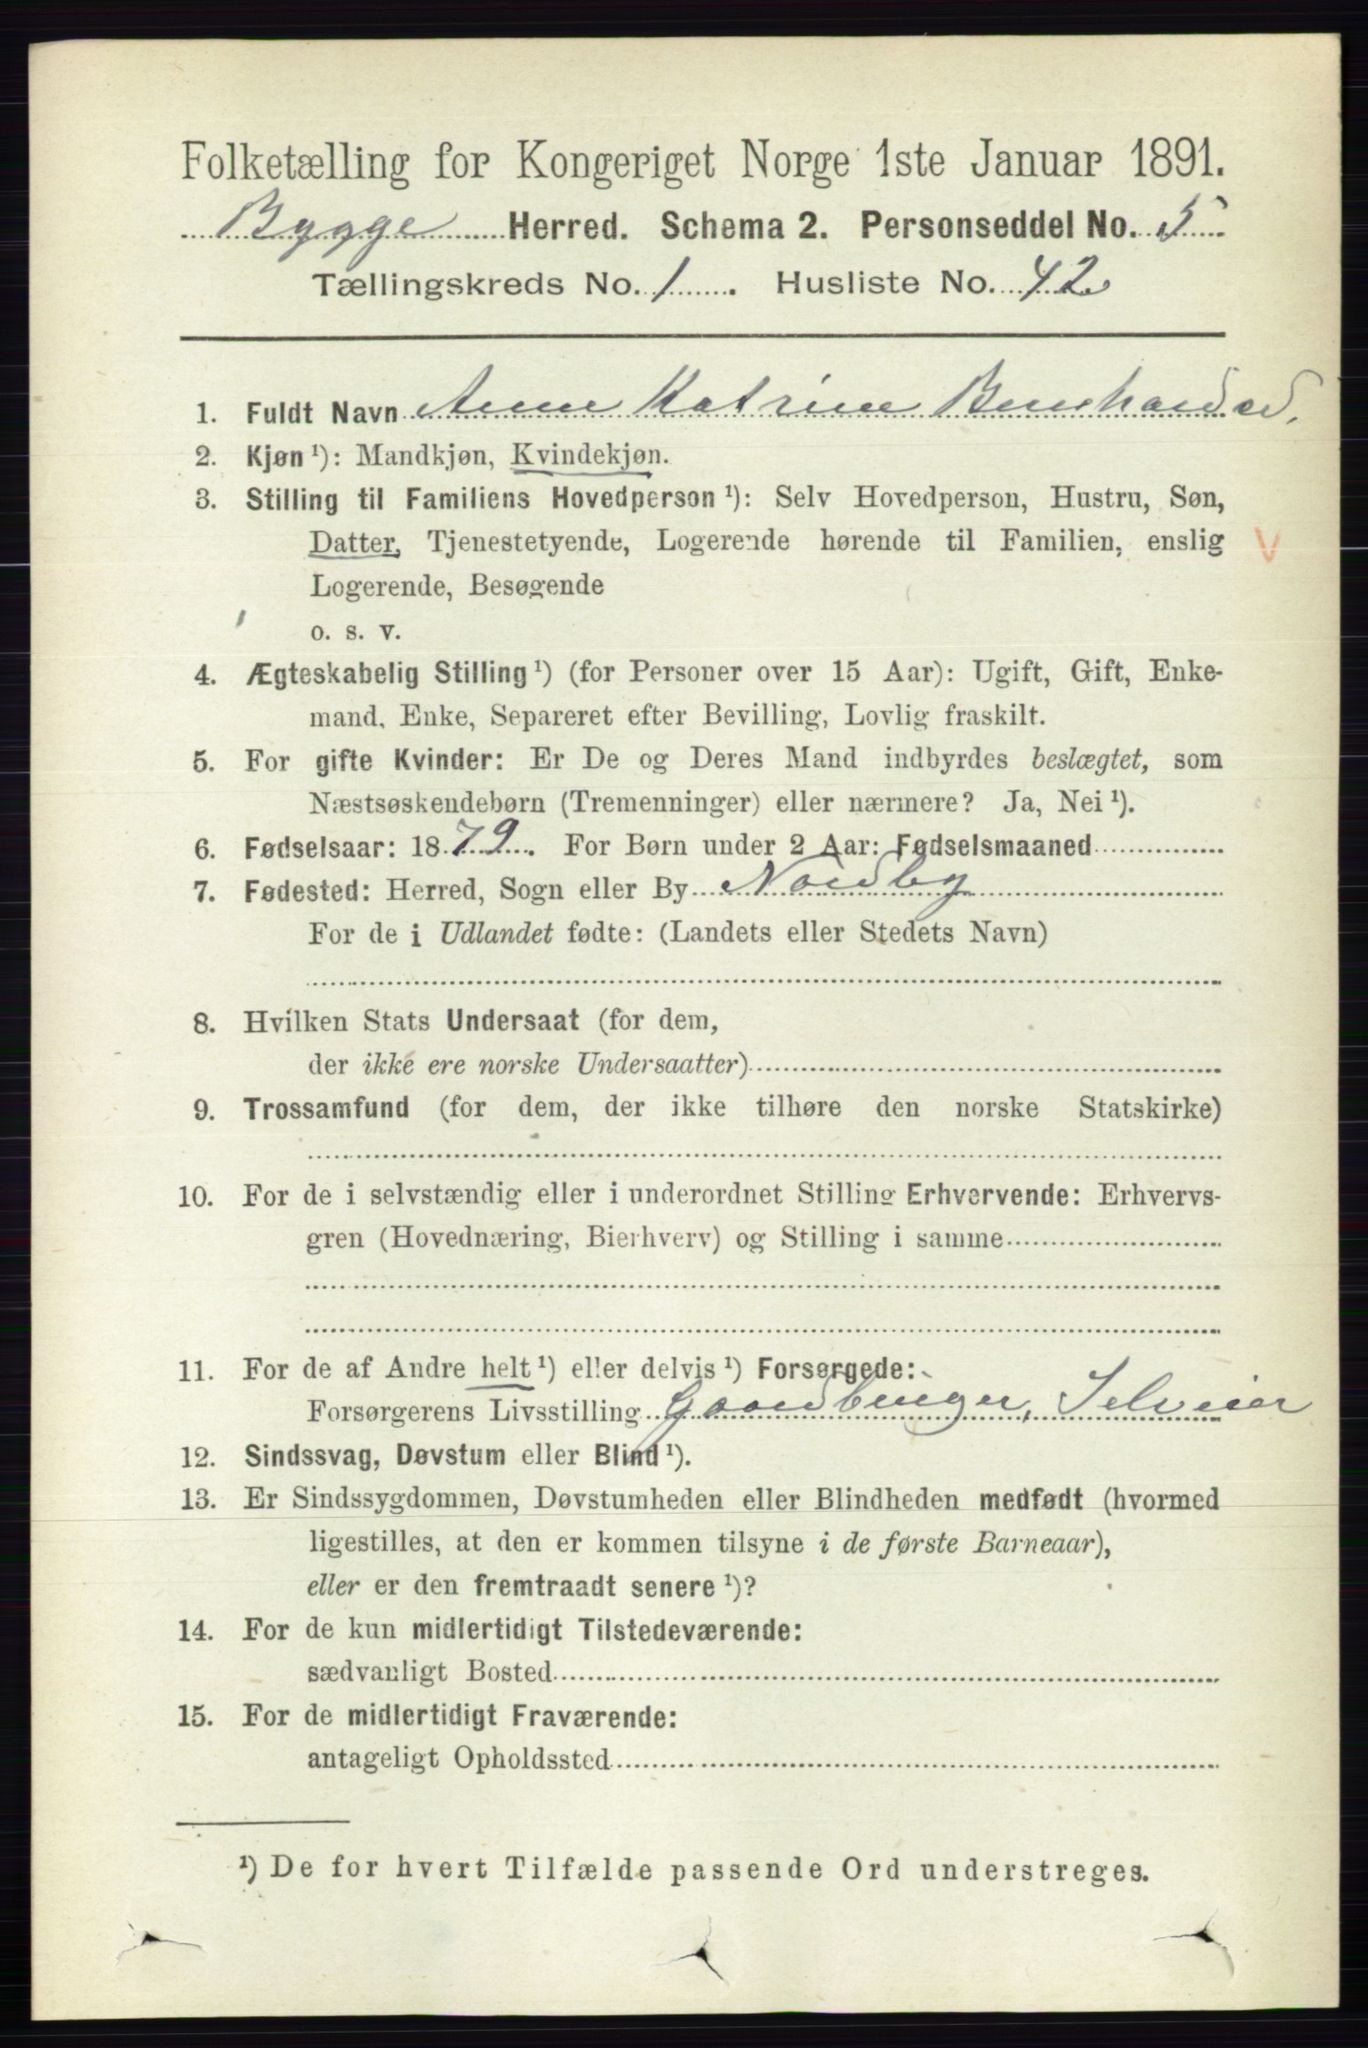 Folketælling for Kongeriget Norge 1ste Januar 1891.
Bygge Herred. Schema 2. Personseddel No. 5
Tællingskreds No. 1. Husliste No. 42
1. Fuldt Navn Anne Katrine Bernhardsd.
2. Kjøn ¹): Mandkjøn, Kvindekjøn.
3. Stilling til Familiens Hovedperson ¹): Selv Hovedperson, Hustru, Søn,
Datter, Tjenestetyende, Logerende hørende til Familien, enslig
Logerende, Besøgende
o. s. v.
4. Ægteskabelig Stilling ¹) (for Personer over 15 Aar): Ugift, Gift, Enke-
mand, Enke, Separeret efter Bevilling, Lovlig fraskilt.
5. For gifte Kvinder: Er De og Deres Mand indbyrdes beslægtet, som
Næstsøskendebørn (Tremenninger) eller nærmere? Ja, Nei ¹).
6. Fødselsaar: 1879. For Børn under 2 Aar: Fødselsmaaned
7. Fødested: Herred, Sogn eller By Nordby
For de i Udlandet fødte: (Landets eller Stedets Navn)
8. Hvilken Stats Undersaat (for dem,
der ikke ere norske Undersaatter)
9. Trossamfund (for dem, der ikke tilhøre den norske Statskirke)
10. For de i selvstændig eller i underordnet Stilling Erhvervende: Erhvervs-
gren (Hovednæring, Bierhverv) og Stilling i samme
11. For de af Andre helt ¹) eller delvis ¹) Forsørgede:
Forsørgerens Livsstilling Gaardbruger, Selveier
12. Sindssvag, Døvstum eller Blind ¹).
13. Er Sindssygdommen, Døvstumheden eller Blindheden medfødt (hvormed
ligestilles, at den er kommen tilsyne i de første Barneaar),
eller er den fremtraadt senere ¹)?
14. For de kun midlertidigt Tilstedeværende:
sædvanligt Bosted
15. For de midlertidigt Fraværende:
antageligt Opholdssted
¹) De for hvert Tilfælde passende Ord understreges.